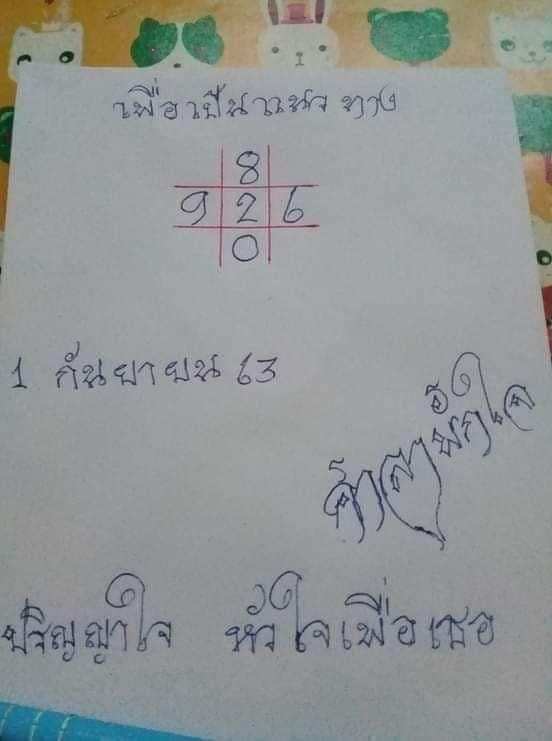 เพื่อเป็นแนวทาง
8
9 2 6
0
1 กันยายน 63
ปริญญาใจ หัวใจเพื่อเธอ